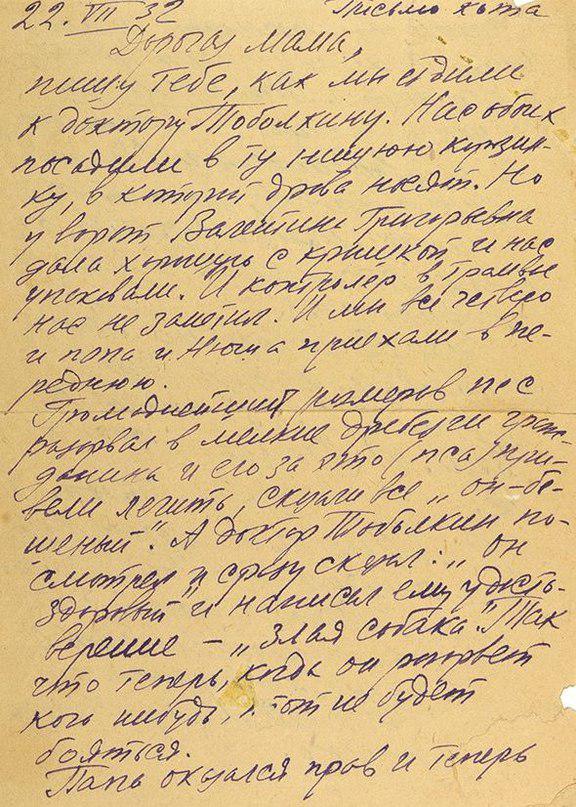 22. VII 32 Письмо кота
Дорогая мама,
пишу тебе, как мы ездили
к доктору Тоболкину. Нас обоих
посадили в ту нищую корзин-
ку, в которой дрова носят. Но
у ворот Валентина Григорьевна
дала хорошую с крышкой и нас
упаковали. И контролер в трамвае
нас не заметил. И мы все четверо
и папа и Нюша приехали в пе-
реднюю.
Громаднейший размеров пес
разорвал в мелкие дребезги граж-
данина и его за это (пса) при-
вели лечить, сказали все „он-бе-
шеный". А доктор Тобылкин по-
смотрел и сразу сказал: „он
здоровый" и написал ему удосто-
верение – „злая собака". Так
что теперь, когда он разорвет
кого нибудь, тот не будет
бояться.
Папа оказался прав и теперь